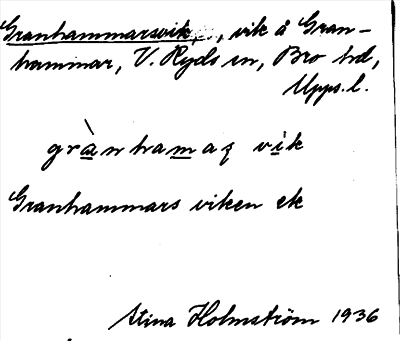 Granhammarsvik, , vik å Gran-
hammar, V. Ryds sn, Bro hd,
Upps. l.
grànhamaʂ vik
Granhammars viken ek
Stina Holmström 1936